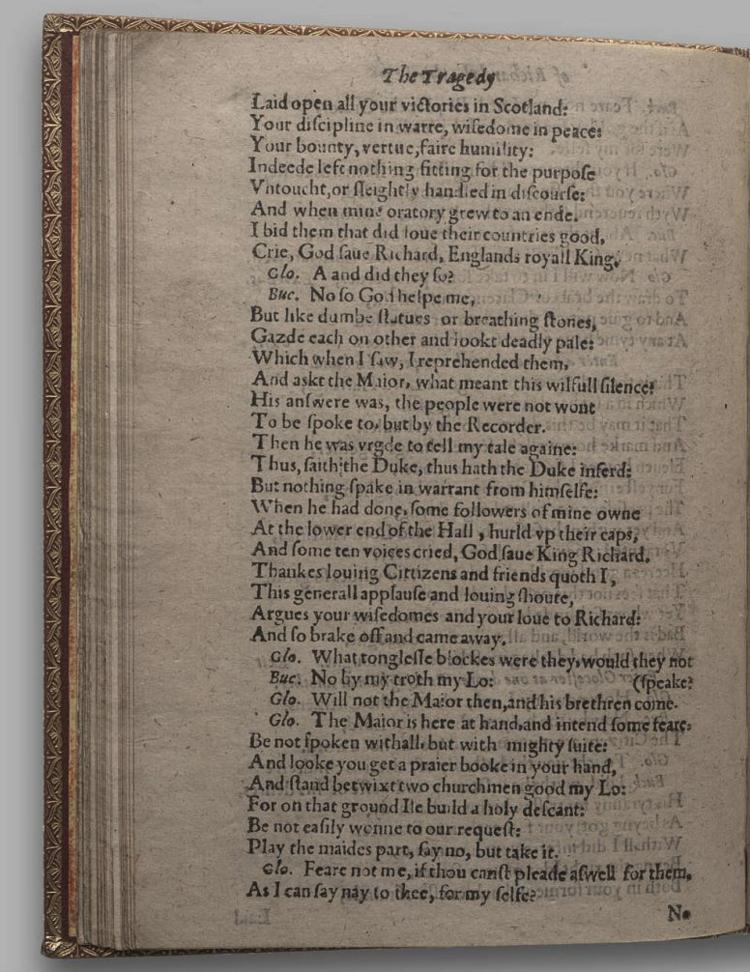 The Tragedy
Laid open all your victories in Scotland:
Your discipline in warre, wisedome in peace:
Your bounty, vertue, faire humility:
Indeede left nothing fitting for the purpose
Vntoucht, or sleightly handled in discourse:
And when mine oratory grew to an ende,
I bid them that did loue their countries good,
Crie, God saue Richard, Englands royall King,
Glo. A and did they so?
Buc. No so God helpe me,
But like dumbe statues or breathing stones,
Gazde each on other and lookt deadly pale:
Which when I saw, I reprehended them,
And askt the Maior, what meant this wilfull silence?
His answere was, the people were not wont
To be spoke to, but by the Recorder.
Then he was vrgde to tell my tale againe:
Thus, saith the Duke, thus hath the Duke inferd:
But nothing spake in warrant from himselfe:
When he had done, some followers of mine owne
At the lower end of the Hall, hurld vp their caps,
And some ten voices cried, God saue King Richard.
Thankes louing Cittizens and friends quoth I,
This generall applause and louing shoute,
Argues your wisedomes and your loue to Richard:
And so brake off and came away.
Glo. What tonglesse blockes were they, would they not
Buc. No by my troth my Lo: (speake?
Glo. Will not the Maior then, and his brethren come.
Glo. The Maior is here at hand, and intend some feare:
Be not spoken withall, but with mighty suite:
And looke you get a praier booke in your hand,
And stand betwixt two churchmen good my Lo:
For on that ground Ile build a holy descant:
Be not easily wonne to our request:
Play the maides part, say no, but take it.
Glo. Feare not me, if thou canst pleade aswell for them,
As I can say nay to thee, for my selfe?
No